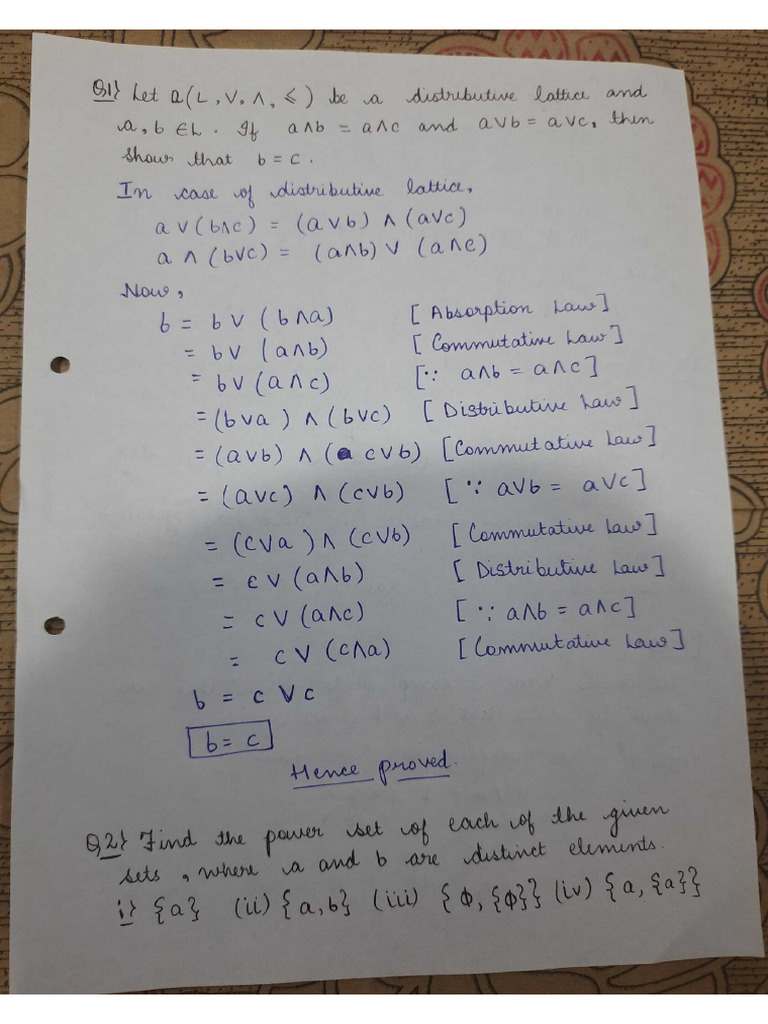 Q1} Let (L, ∨, ∧, ≤) be a distributive lattice and
a, b ∈ L. If a∧b = a∧c and a∨b = a∨c, then
show that b = c.
In case of distributive lattice,
a ∨ (b∧c) = (a∨b) ∧ (a∨c)
a ∧ (b∨c) = (a∧b) ∨ (a∧c)
Now,
b = b∨ (b∧a) [Absorption Law]
= b∨ (a∧b) [Commutative Law]
= b∨ (a∧c) [∵ a∧b = a∧c]
= (b∨a) ∧ (b∨c) [Distributive Law]
= (a∨b) ∧ (c∨b) [Commutative Law]
= (a∨c) ∧ (c∨b) [∵ a∨b = a∨c]
= (c∨a) ∧ (c∨b) [Commutative Law]
= c∨ (a∧b) [Distributive Law]
= c∨ (a∧c) [∵ a∧b = a∧c]
= c∨ (c∧a) [Commutative Law]
b = c∨c
b = c
Hence proved.
Q2} Find the power set of each of the given
sets, where a and b are distinct elements.
i} {a} (ii) {a,b} (iii) {ɸ, {ɸ}} (iv) {a, {a}}